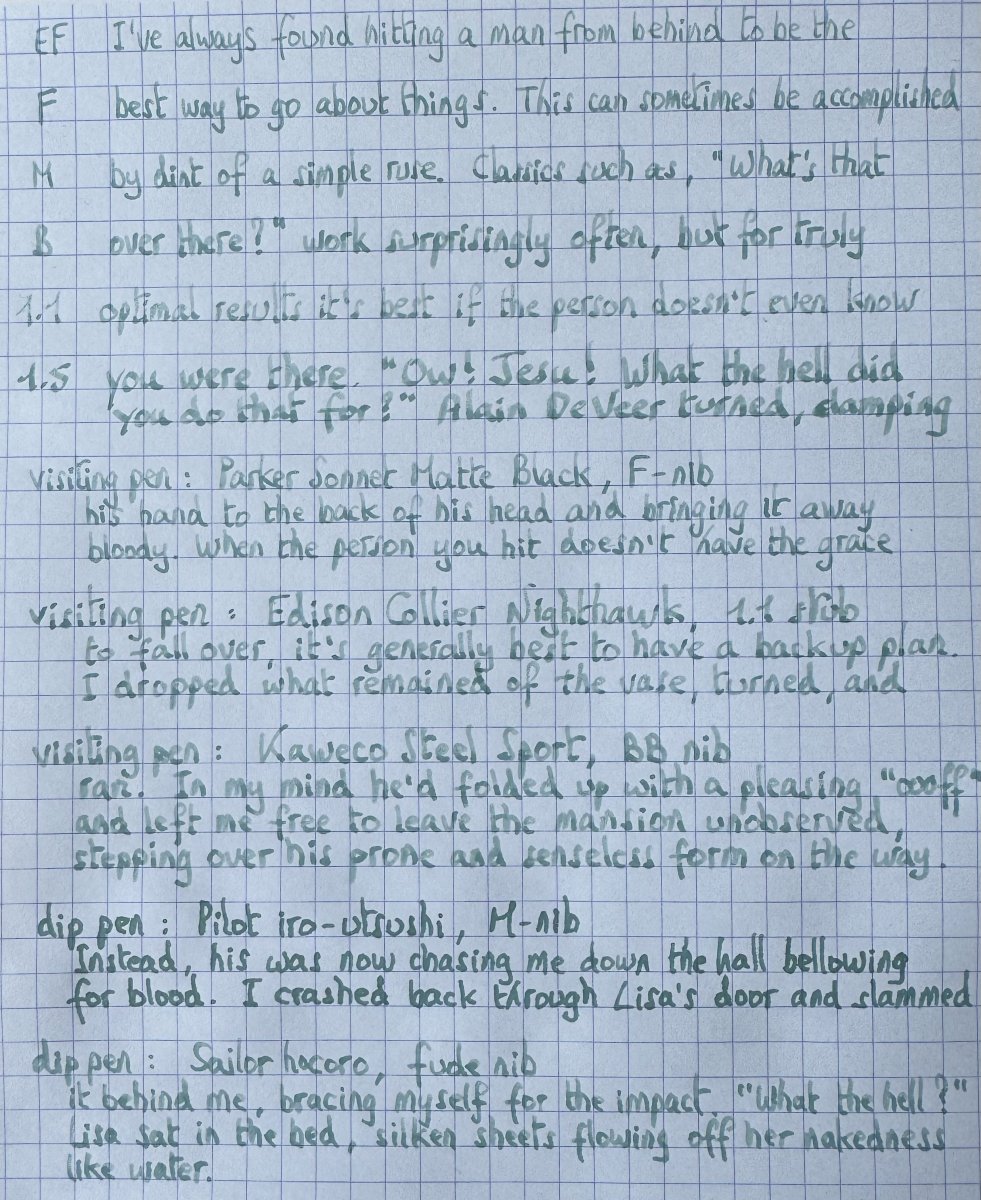 EF I've always found hitting a man from behind to be the
F best way to go about things. This can sometimes be accomplished
M by dint of a simple ruse. Classics such as, "What's that
B over there?" work surprisingly often, but for truly
1.1 optimal results it's best if the person doesn't even know
1.5 you were there. "Ow! Jesu! What the hell did
you do that for?" Alain DeVeer turned, clamping
visiting pen: Parker Sonnet Matte Black, F-nib
his hand to the back of his head and bringing it away
bloody. When the person you hit doesn't have the grace
visiting pen: Edison Collier Nighthawk, 1.1 nib
to fall over, it's generally best to have a backup plan.
I dropped what remained of the vase, turned, and
visiting pen: Kaweco Steel Sport, BB nib
ran. In my mind he'd folded up with a pleasing "oooff"
and left me free to leave the mansion unobserved,
stepping over his prone and senseless form on the way.
dip pen: Pilot iro-utsushi, M-nib
Instead, his was now chasing me down the hall bellowing
for blood. I crashed back through Lisa's door and slammed
dip pen: Sailor hocoro, fude nib
it behind me, bracing myself for the impact. "What the hell?"
Lisa sat in the bed, silken sheets flowing off her nakedness
like water.